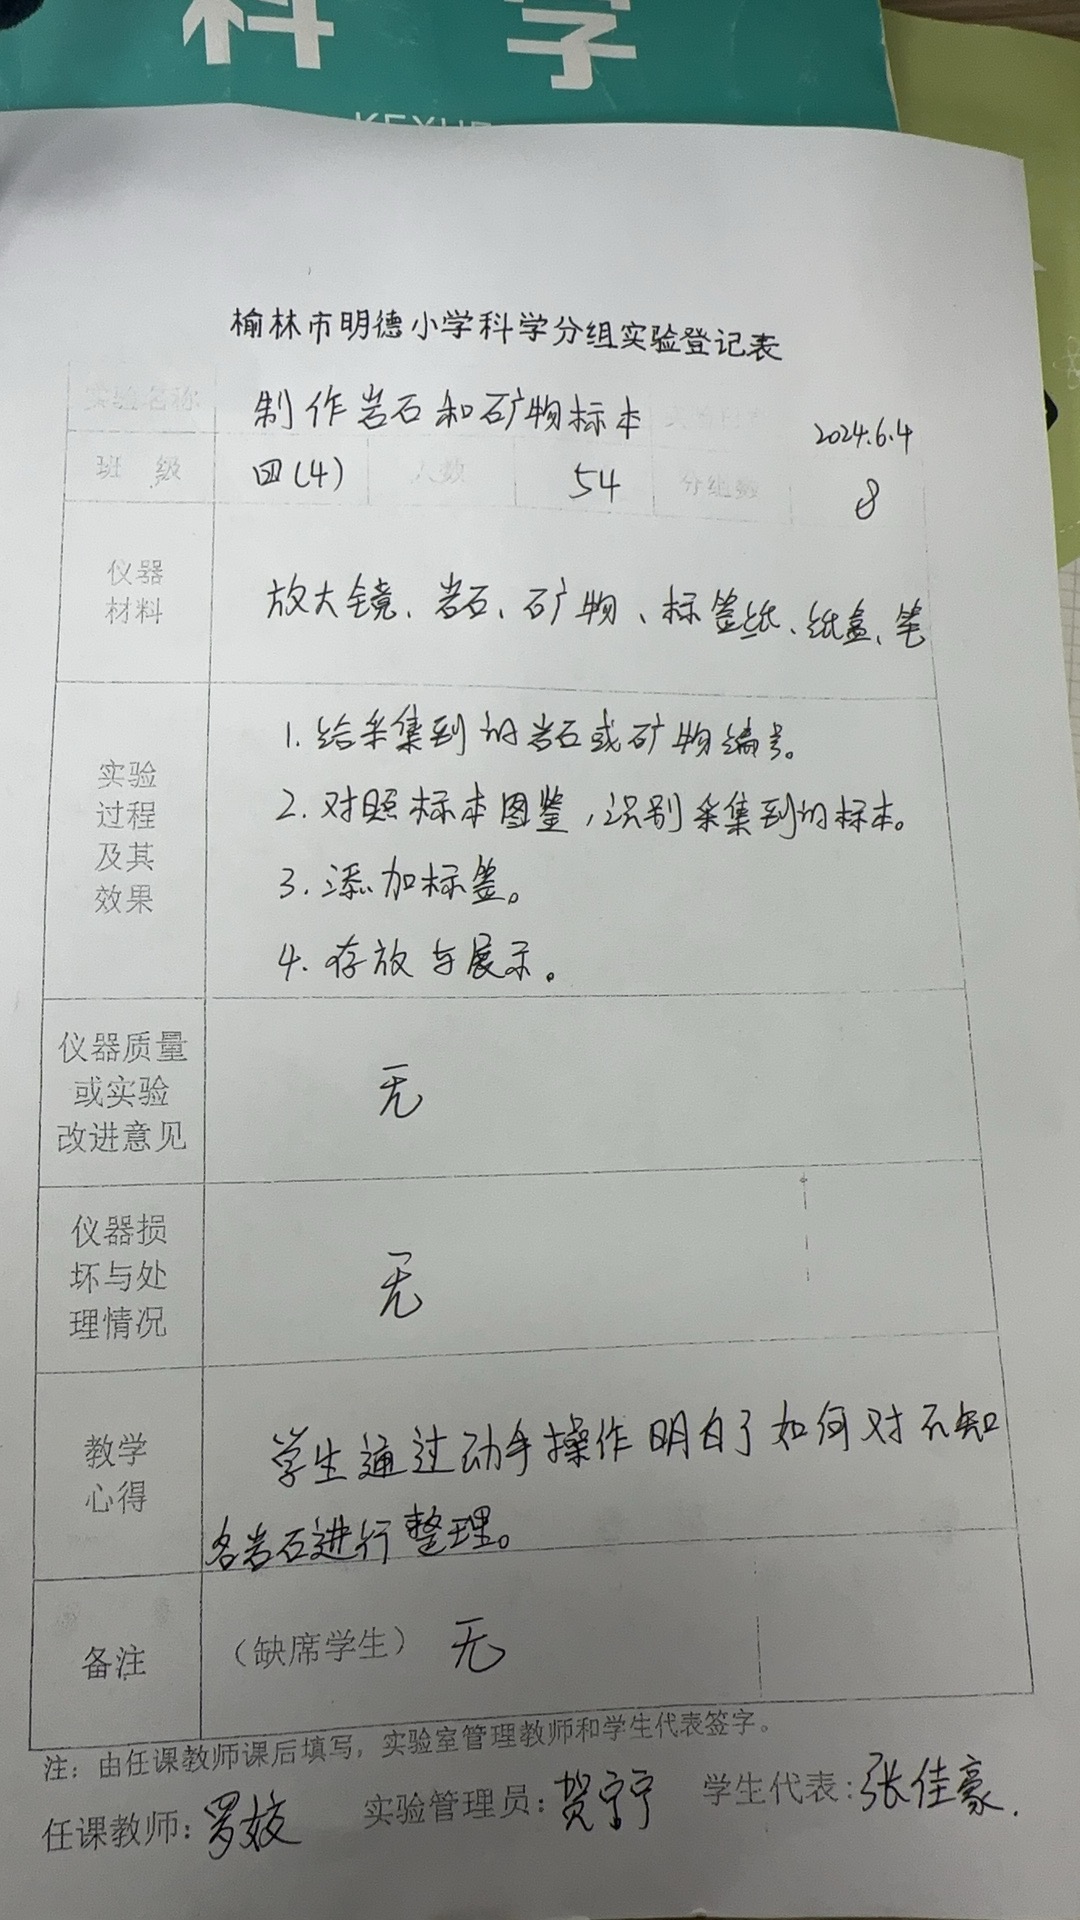 科 学
KEXUE
榆林市明德小学科学分组实验登记表
实验名称 制作岩石和矿物标本 2024.6.4
班 级 四(4) 人数 54 分组数 8
仪器
材料
放大镜、岩石、矿物、标签纸、纸盒、笔
实验
过程
及其
效果
1.给采集到的岩石或矿物编号。
2.对照标本图鉴,识别采集到的标本。
3.添加标签。
4.存放与展示。
仪器质量
或实验
改进意见
无
仪器损
坏与处
理情况
无
教学
心得
学生通过动手操作明白了如何对不知
名岩石进行整理。
备注 (缺席学生) 无
注:由任课教师课后填写,实验室管理教师和学生代表签字。
任课教师:罗姣 实验管理员:贺宁宁 学生代表:张佳豪.